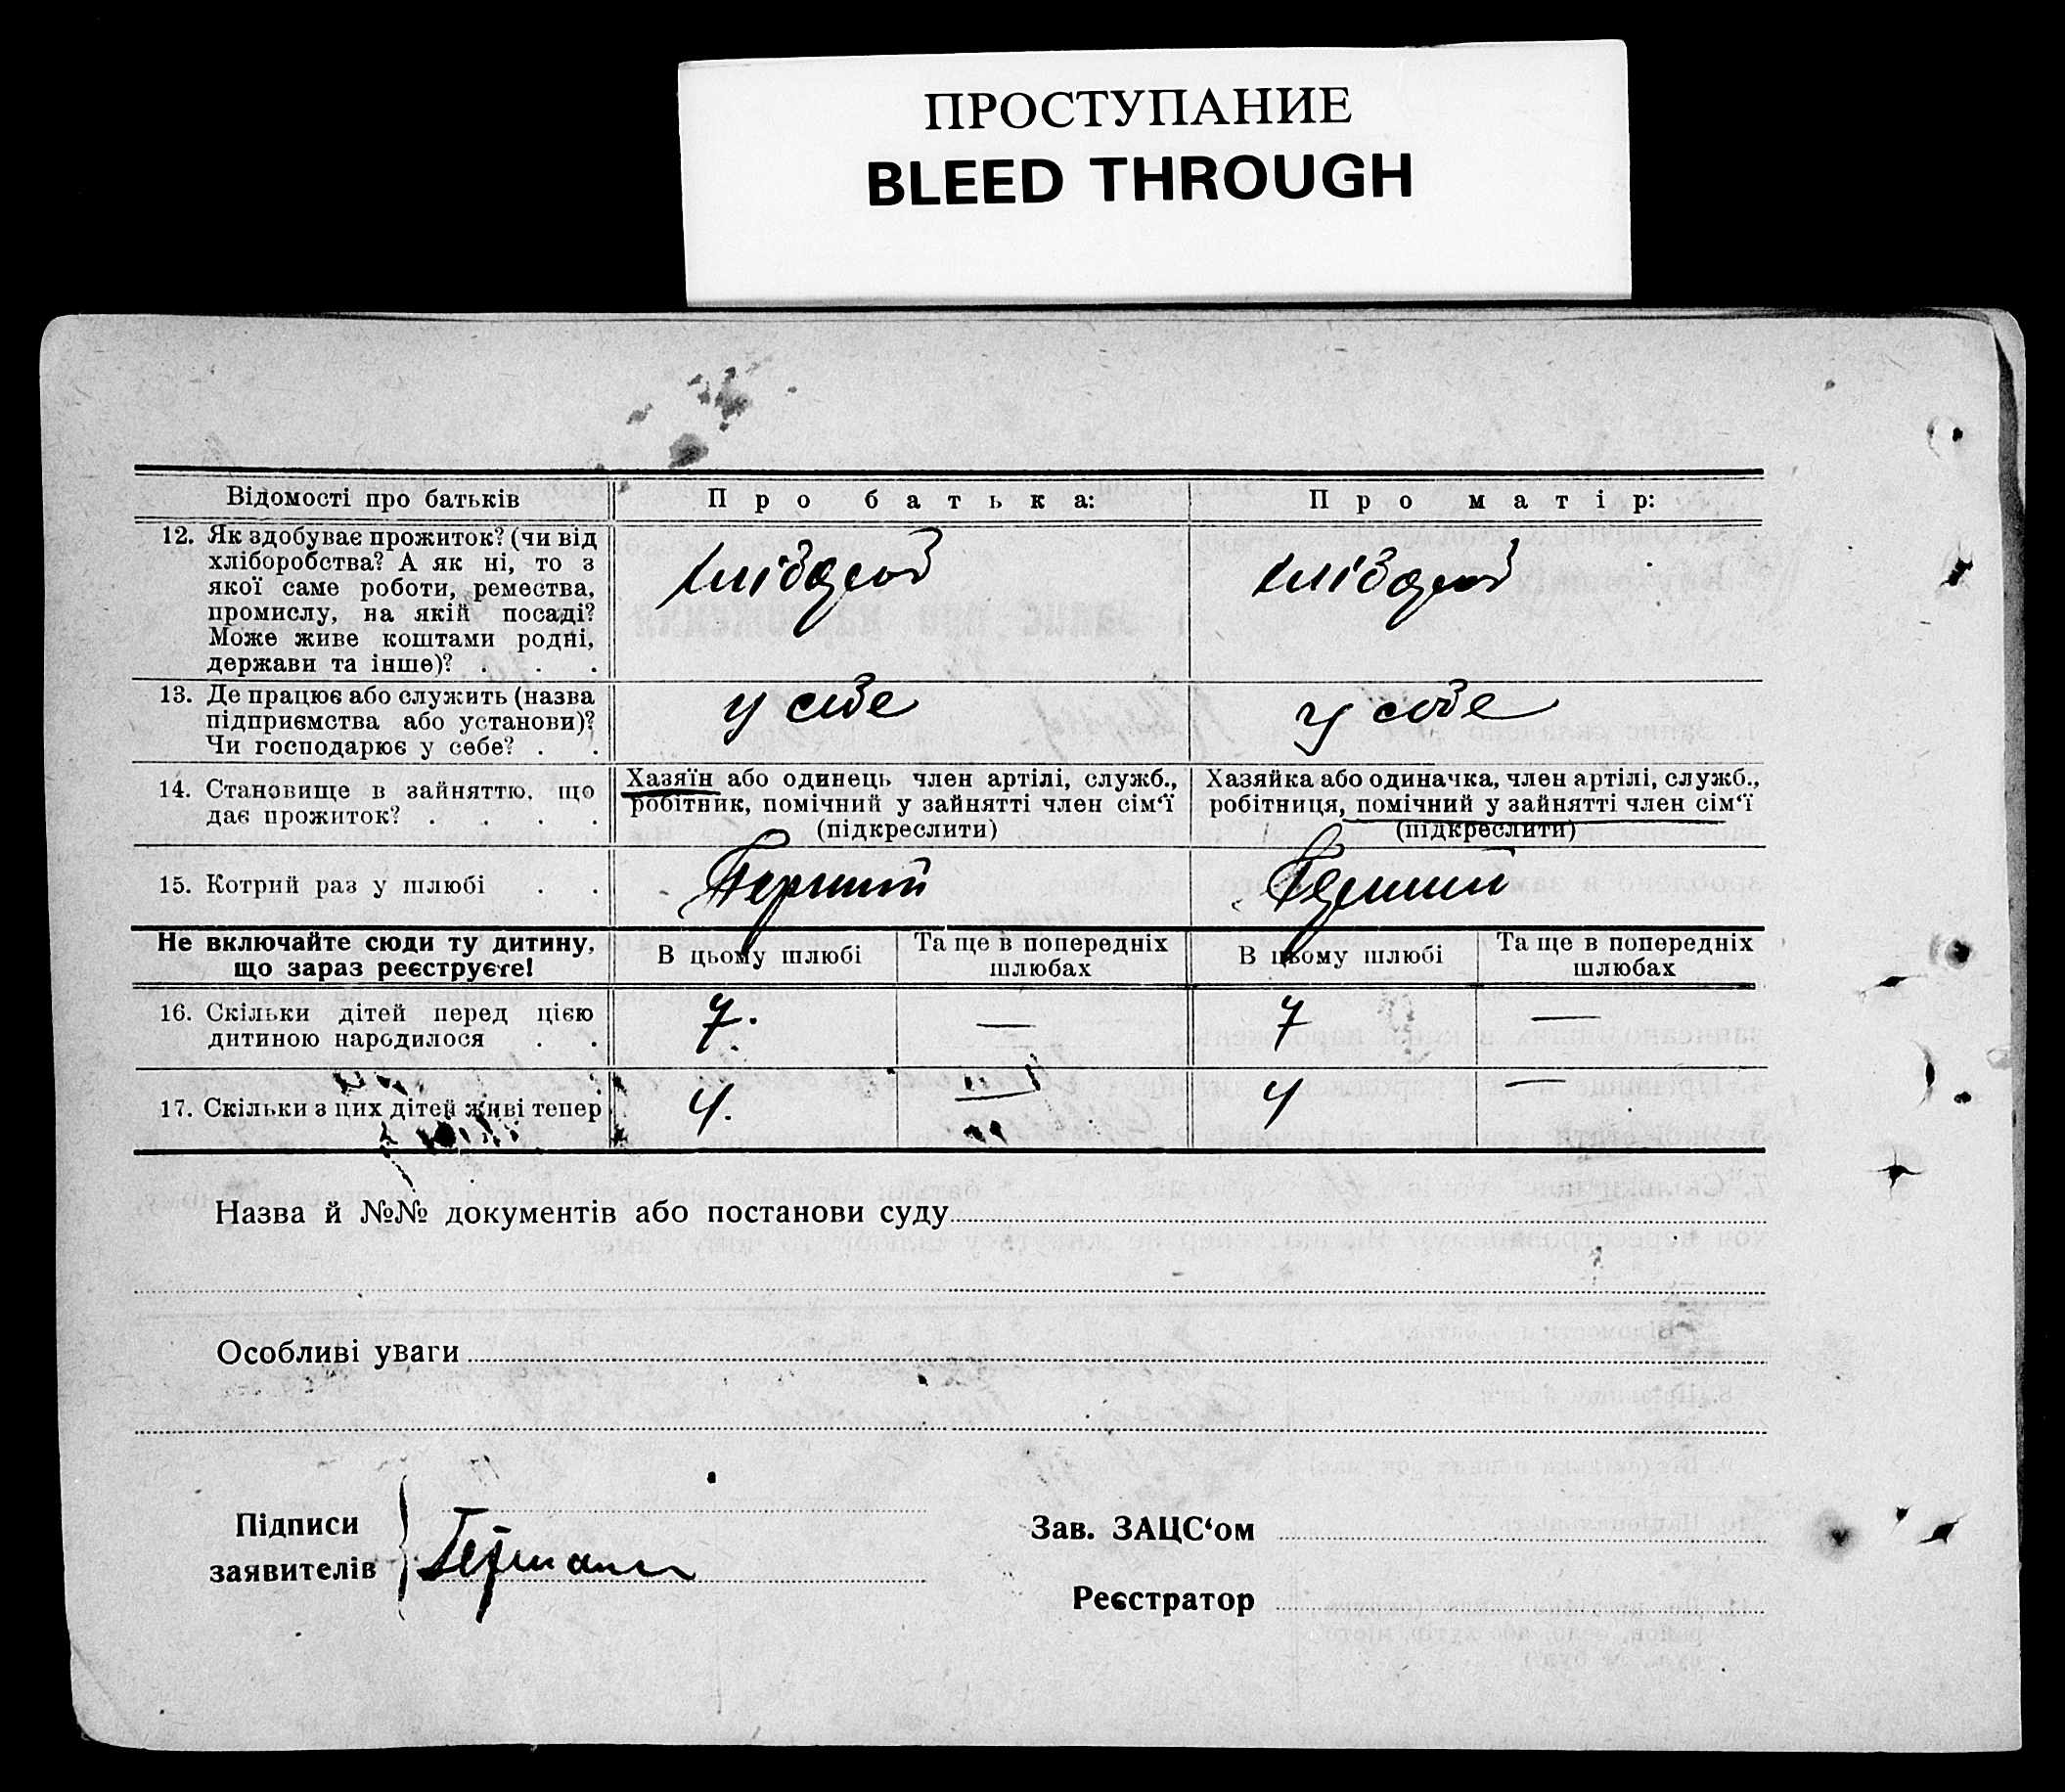 ПРОСТУПАНИЕ
BLEED THROUGH
Відомості про батьків
Про батька:
Про матір:
12. Як здобуває прожиток? (чи від
хліборобства? А як ні, то з
якої саме роботи, ремества,
промислу, на якій посаді?
Може живе коштами родні,
держави та інше)? . . .
хлібороб
хлібороб
13. Де працює або служить (назва
підприємства або установи)?
Чи господарює у себе? . .
у себе
у себе
14. Становище в зайняттю, що
дає прожиток? . . . .
Хазяїн або одинець член артілі, служб.,
робітник, помічний у зайнятті член сім‘ї
(підкреслити)
Хазяйка або одиначка, член артілі, служб.,
робітниця, помічний у зайнятті член сім‘ї
(підкреслити)
15. Котрий раз у шлюбі . .
Перший
Перший
Не включайте сюди ту дитину,
що зараз реєструєте!
В цьому шлюбі
Та ще в попередніх
шлюбах
В цьому шлюбі
Та ще в попередніх
шлюбах
16. Скільки дітей перед цією
дитиною народилося . .
7.
—
7
—
17. Скільки з цих дітей живі тепер
4.
—
4
—
Назва й №№ документів або постанови суду
Особливі уваги
Підписи
заявителів
Зав. ЗАЦС‘ом
Реєстратор